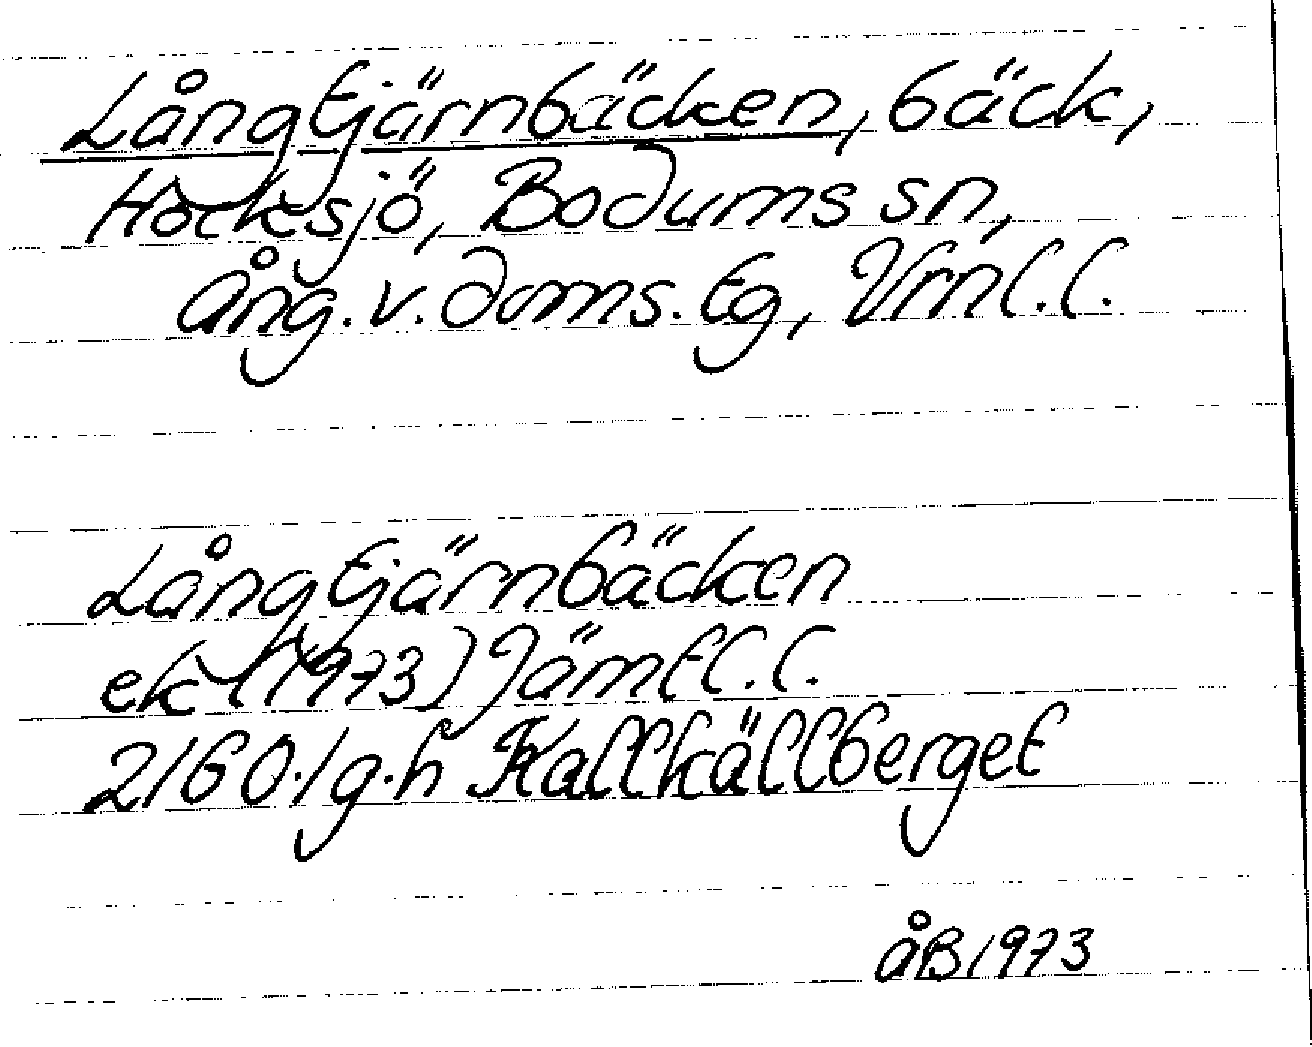 Långtjärnbäcken, bäck,
Hocksjö, Bodums sn,
Ång. v. doms. tg, Vrnl. l.
Långtjärnbäcken
ek (1973) Jämtl. l.
2160./g.h Kallkällberget
åB 1973